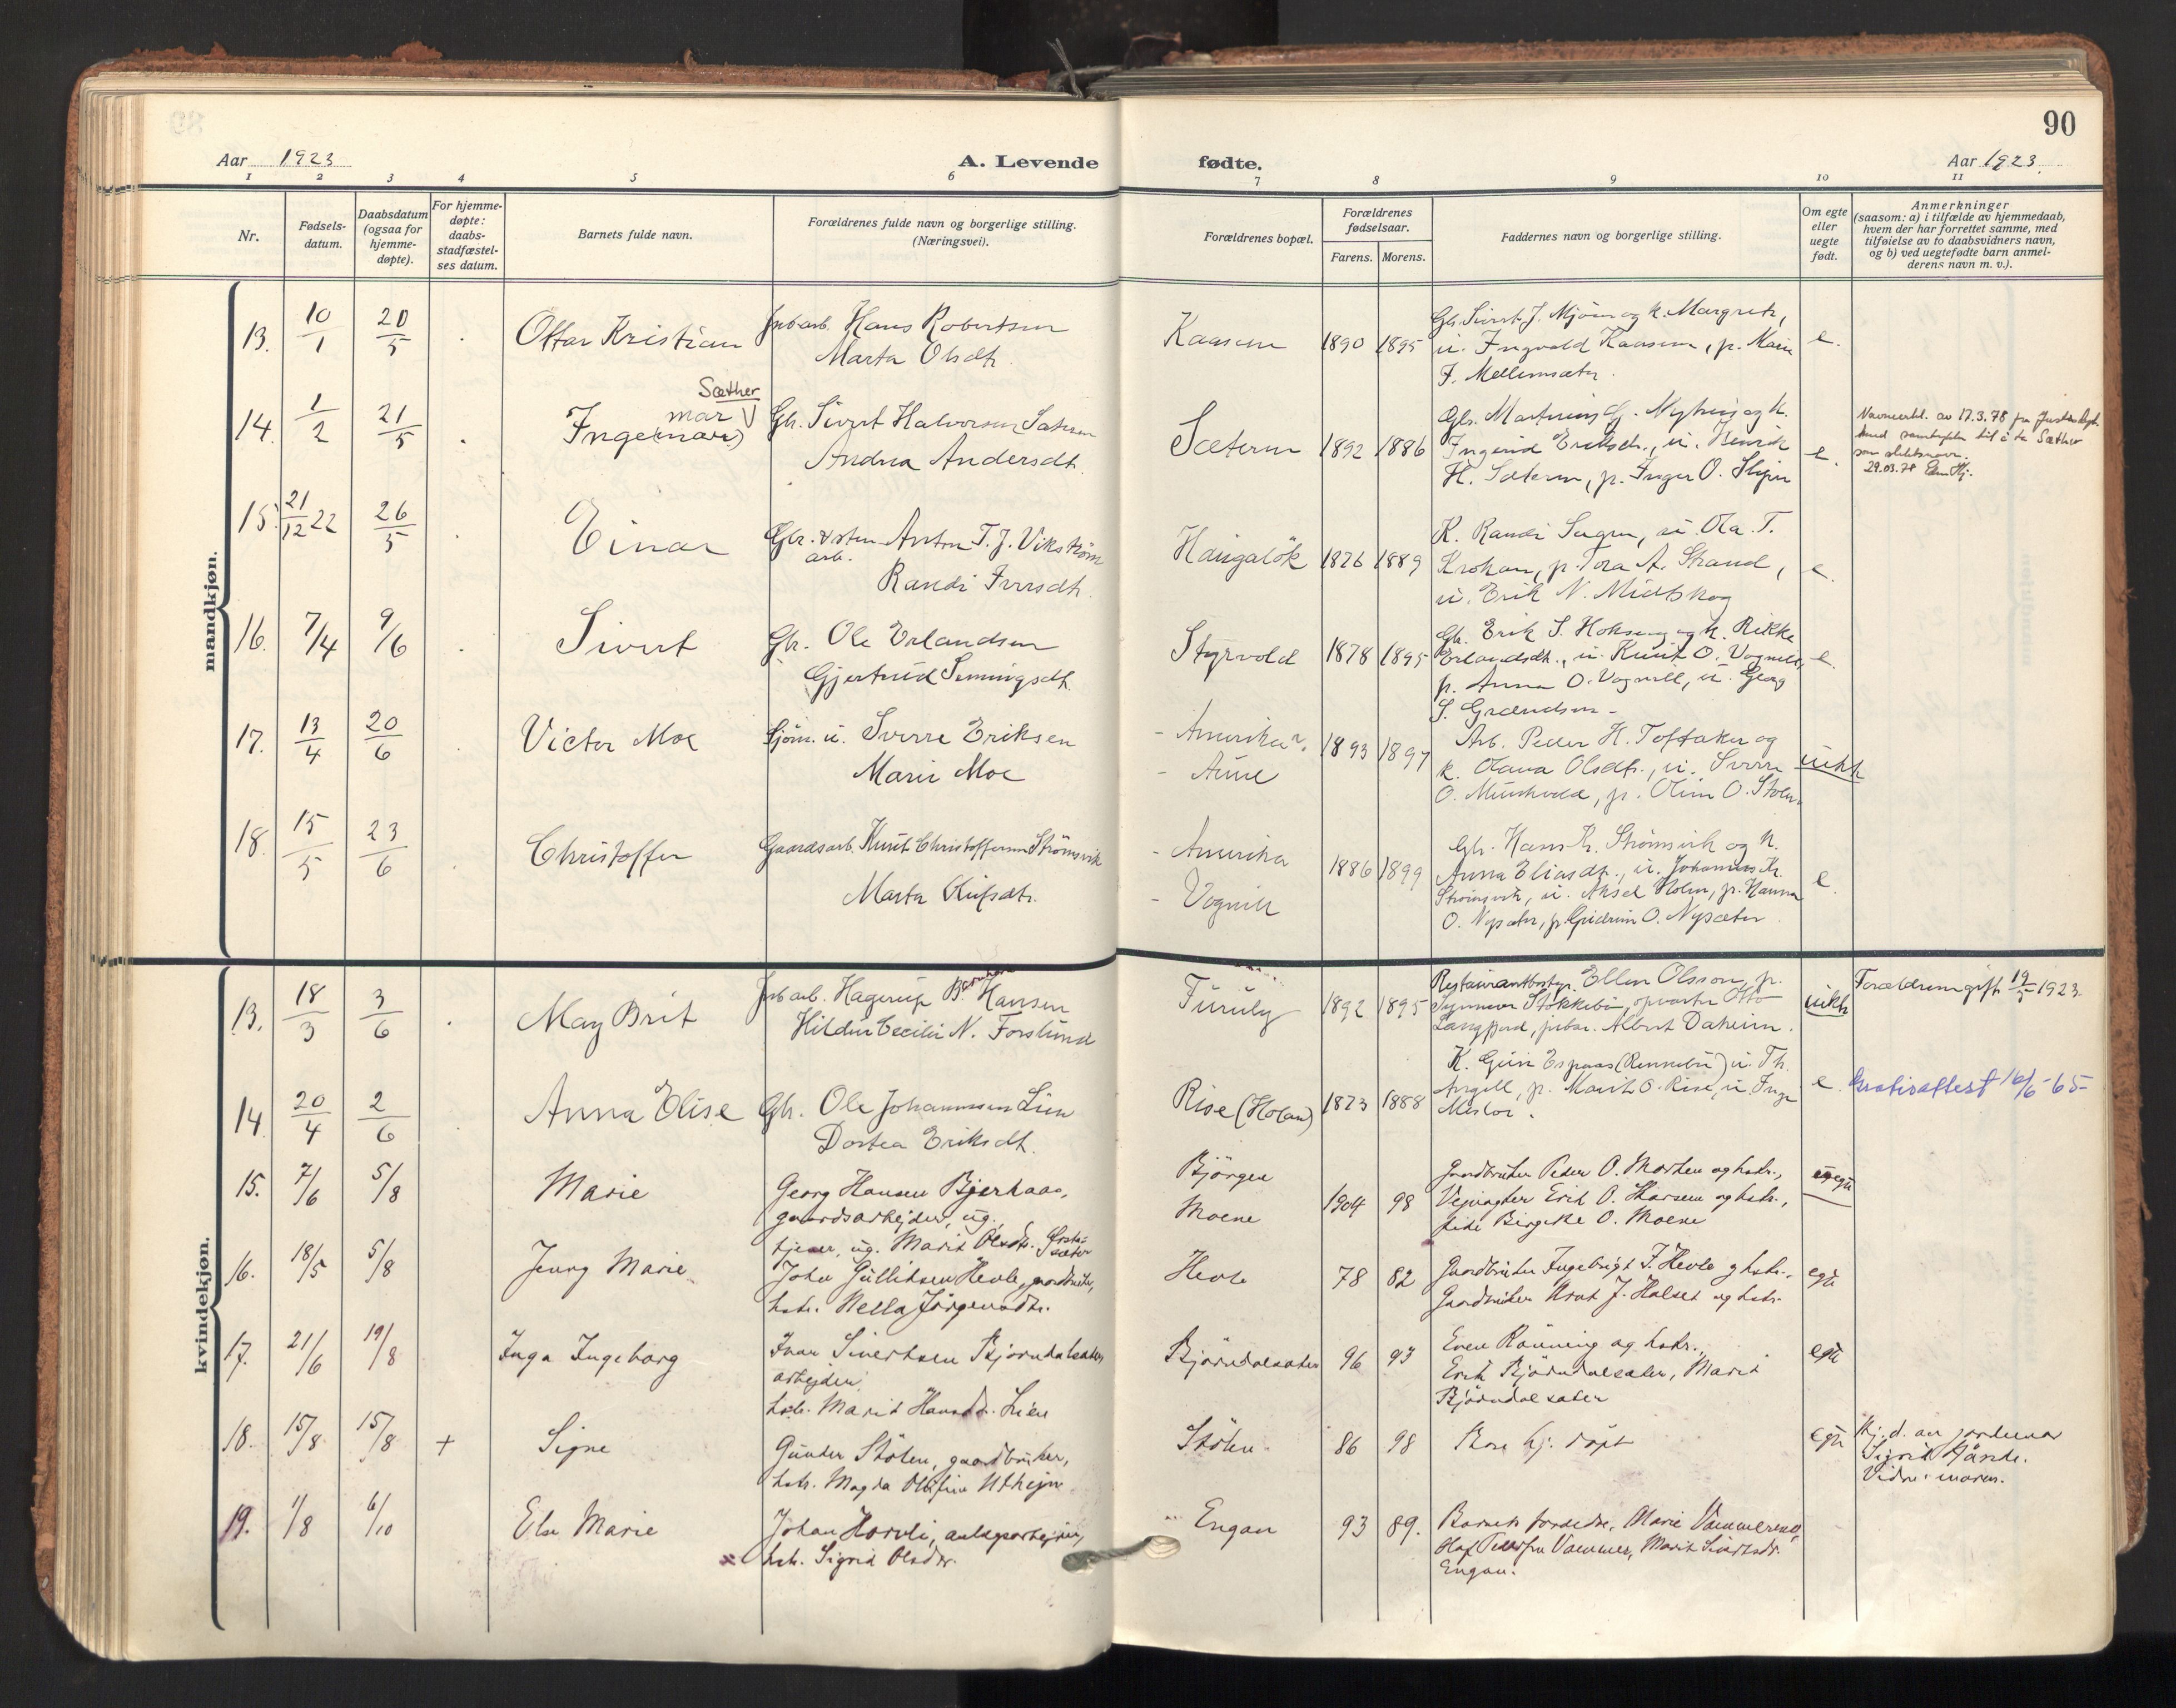 90
Aar 1923
A. Levende
fødte.
Aar 1923.
1 2 3 4 5 6 7 8 9 10 11
Nr.
Fødsels-
datum.
Daabsdatum
(ogsaa for
hjemme-
døpte).
For hjemme-
døpte:
daabs-
stadfæstel-
ses datum.
Barnets fulde navn.
Forældrenes fulde navn og borgerlige stilling.
(Næringsvei).
Forældrenes bopæl.
Forældrenes
fødselsaar.
Farens. Morens.
Faddernes navn og borgerlige stilling.
Om egte
eller
uegte
født.
Anmerkninger
(saasom: a) i tilfælde av hjemmedaab,
hvem der har forrettet samme, med
tilføielse av to daabsvidners navn,
og b) ved uegtefødte barn anmel-
derens navn m. v.).
mandkjøn.
13. 10/1 20/5 Ottar Kristian
Jnbarb. Hans Robertsen
Marta Olsdtr.
Kaasen 1890 1895
Gbr. Sivert J. Mjøen og k. Margrete,
u. Ingvald Kaasen, p. Mari
J. Mellemsæter.
e.
14. 1/2 21/5
Sæther
mar
Inge(mar)
Gbr. Sivert Halvorsen Sæteren
Andrea Andersdtr.
Sæteren 1892 1886
Ingerid Eriksdtr., u. Henrik
H. Sæteren, p. Inger O. Skjen
e.
av 17.3.78 fra
til å ta Sæther
29.03.78
15. 21/12 22 26/5 Einar
Gbr. & sten Anton T. J. Vikström
arb.
Randi Iversdtr.
Haugaløk 1876 1889
K. Randi, u. Ola T.
Krokan, p. Tora A. Strand,
u. Erik N. Midtskog
e.
16. 7/4 9/6 Sivert
Gbr. Ole Erlandsen
Gjertrud Semmingsdtr.
Styrvold 1878 1895
Gbr. Erik S. Hokseng og k. Rikke
Erlandsdtr., u. Knut O. Vognill,
p. Anna O. Vognill, u. Georg
S. Grændsen -
e.
17. 13/4 20/6 Victor Moe
Sjøm. u. Sverre Eriksen
Marie Moe
- Amerika
- Aune
1893 1897
Arb. Peder H. Toftaker og
k. Olava Olsdtr., u. Sverre
O. Munkvold, p. Oline O. Stølen
uekte
18. 15/5 23/6 Christoffer
Gaardsarb. Knut Christoffersen Strömsvik
Marta
- Amerika
- Vognill
1886 1899
Gbr. Hans Kr. Strömsvik og k.
Anna Eliasdtr., u. Johannes Kr.
Strömsvik, u. Aksel Holm, p. Hanna
O. Nysæter, p. Gudrun O. Nysæter.
e.
kvindekjøn.
13. 18/3 3/6 May Brit
Jnbarb. Hagerup B. Hansen
Hildur Cecilie N. Forslund
Furuly 1892 1895
Restaurantbestyr. Ellen Olsson, p.
Synnøve Stokkebø, opvarter Otto
Langfjord, Albert Daheim.
uekte
Forældrene gift 19/5 1923.
14. 20/4 2/6 Anna Elise
Gbr. Ole Johannessen Lien
Dortea Eriksdtr.
Rise (Holan) 1873 1888
K. Guri Espaas (Rennebu) u. Th.
Angell, p. Marit O. Rise, u. Inge
Mislor.
e.
Gratisattest 16/6-65-
15. 7/6 5/8 Marie
Georg Hansen Bjerkaas,
gaardsarbejder, ug.
tjener, ug. Marit Olsdtr.
Bjørgen
Moene
1904 98
Gaardbruker Peder O. Morken og hstr.,
Vejvagter Erik O. Skarsem og hstr.,
pike Birgitte O. Moene
uegte
16. 18/5 5/8 Jenny Marie
John Gulliksen Hevle, gaardbruker,
hstr. Nella Jørgensdtr.
Hevle 78 82
Gaardbruker Ingebrigt J. Hevle og hstr.,
Gaardbruker Knut J. Halset og hstr.
egte
17. 21/6 19/8 Inga Ingeborg
Ivar Sivertsen Bjørndalsæter
arbejder
hstr. Marit Hansdtr. Lien
Bjørndalsæter 96 93
Even Rönning og hstr.,
Erik Bjørndalsæter, Marit
Bjørndalsæter
egte
18. 15/8 15/8 + Signe
Gunder Stölen, gaardbruker,
hstr. Magda Olufine Uthejm
Stölen 86 98
Bare hj. døpt
egte
Hj. d. av jordmor
Sigrid
Vidne: moren.
19. 1/8 6/10 Else Marie
Johan Horvli, anlegsarbejder,
hstr. Sigrid Olsdtr.
Engan 93 89.
Barnets forældre, Marie Vammervold,
Olaf Vammer, Marit Sivertsdtr.
Engan.